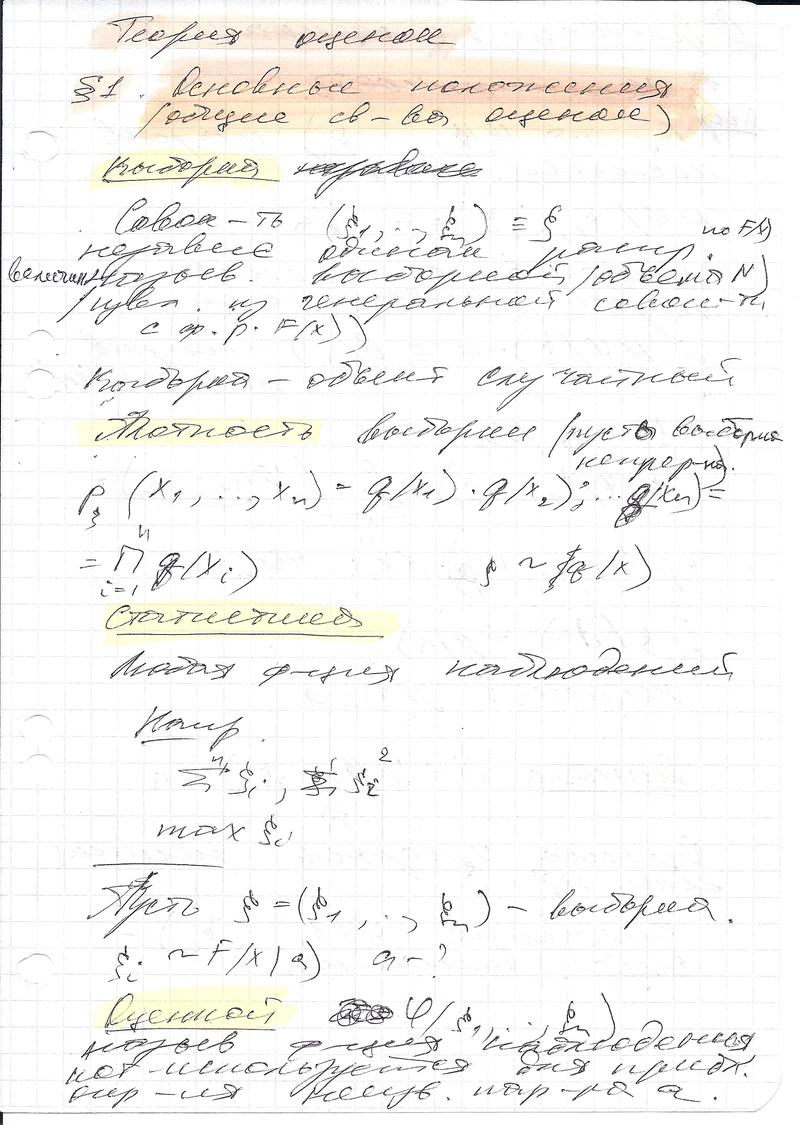 Теория оценок
§1. Основные положения
(общие св-ва оценок)
Выборка
Совок-ть (ξ₁, .., ξₙ) ≡ ξ
независ. одинак. распр. по F(x)
величин назыв. выборкой (объёма N)
/извл. из генеральной совок-ти
с ф. р. F(x))
Выборка – объект случайный
Плотность выборки (пусть выборка
непрер-на).
p_ξ (x₁, .., xₙ) = q(x₁) · q(x₂) · ... q(xₙ) =
= ∏ᵢ₌₁ⁿ q(xᵢ) ξ ~ q(x)
Статистика
Любая ф-ция наблюдений
Напр.
Σⁿ ξᵢ, Σ ξᵢ²
max ξᵢ
Пусть ξ = (ξ₁, .., ξₙ) – выборка.
ξᵢ ~ F(x|a) a - ?
Оценкой φ(ξ₁, .., ξₙ)
назыв ф-ция наблюдения
кот используется для прибл.
опр-ия неизв. пар-ра a.